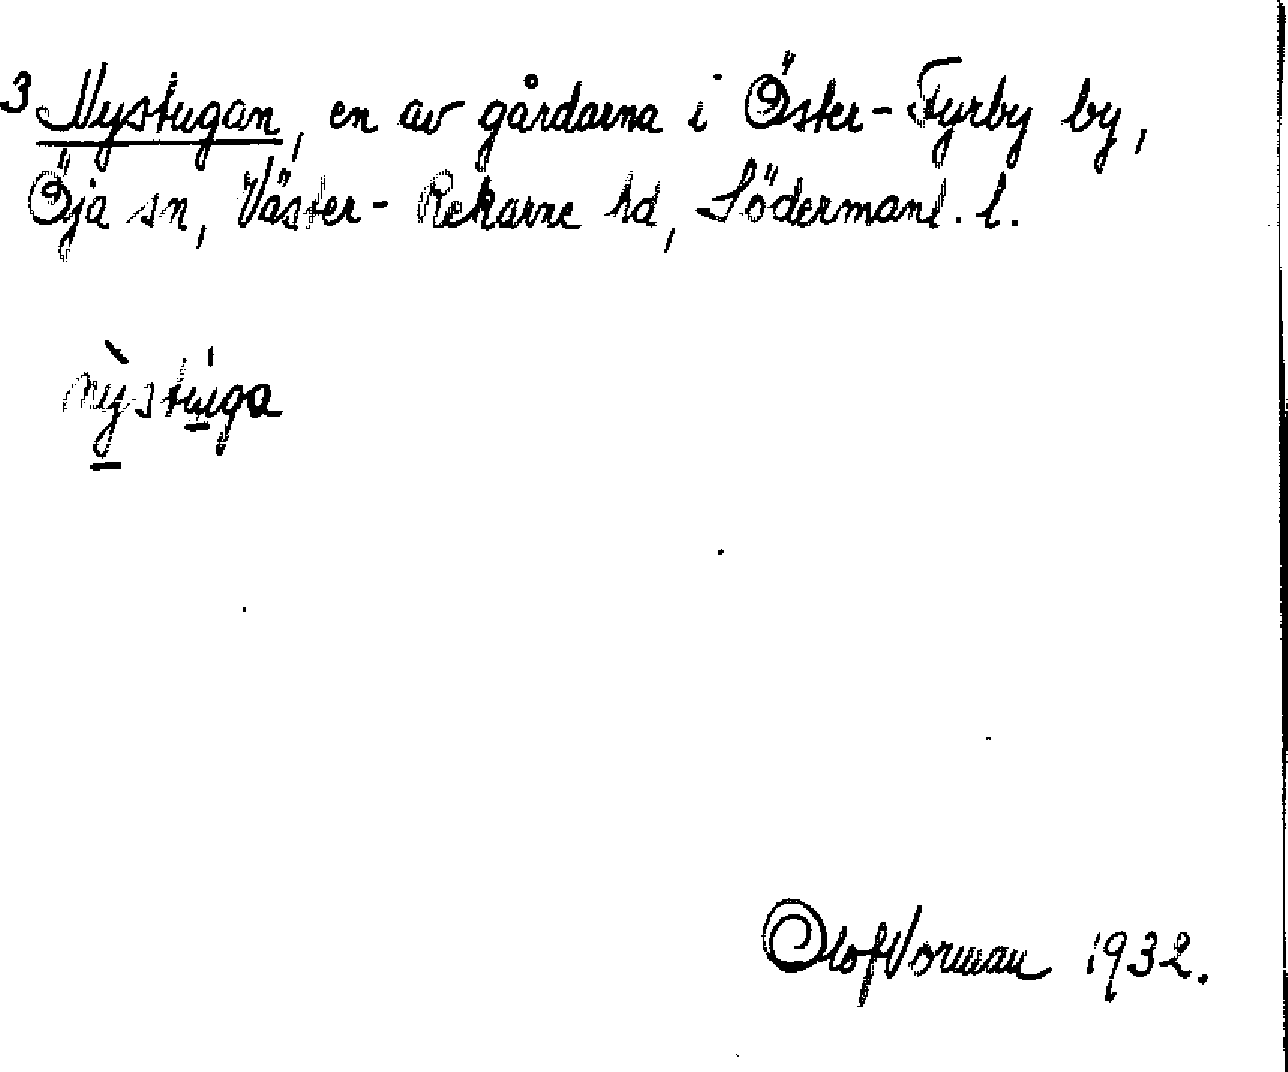 3 Nystugan, en av gårdarna i Öster-Fyrby by,
Öja sn, Väster-Rekarne hd, Södermanl. l.
nỳstu̍ga
Olof Norman 1932.